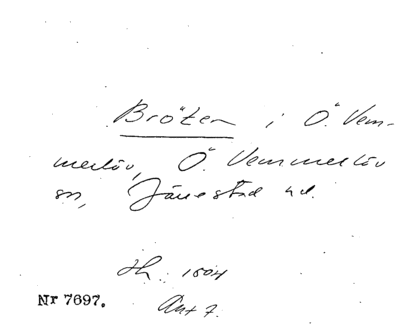 Bröten i Ö. Vem-
merlöv, Ö. Vemmerlöv
sn, Järrestad hd.
Hh. 1504
Nr 7697.
Ant 7.